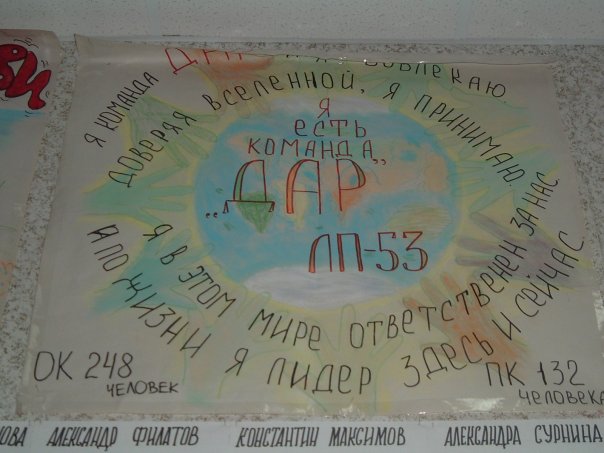 Я КОМАНДА ДАР И Я ВОВЛЕКАЮ.
ДОВЕРЯЯ ВСЕЛЕННОЙ, Я ПРИНИМАЮ.
Я
ЕСТЬ
КОМАНДА
„ДАР”
ЛП-53
Я В ЭТОМ МИРЕ ОТВЕТСТВЕНЕН ЗА НАС
А ПО ЖИЗНИ Я ЛИДЕР ЗДЕСЬ И СЕЙЧАС
ОК 248
ЧЕЛОВЕК
ПК 132
ЧЕЛОВЕКА
АЛЕКСАНДР ФИЛАТОВ КОНСТАНТИН МАКСИМОВ АЛЕКСАНДРА СУРНИНА